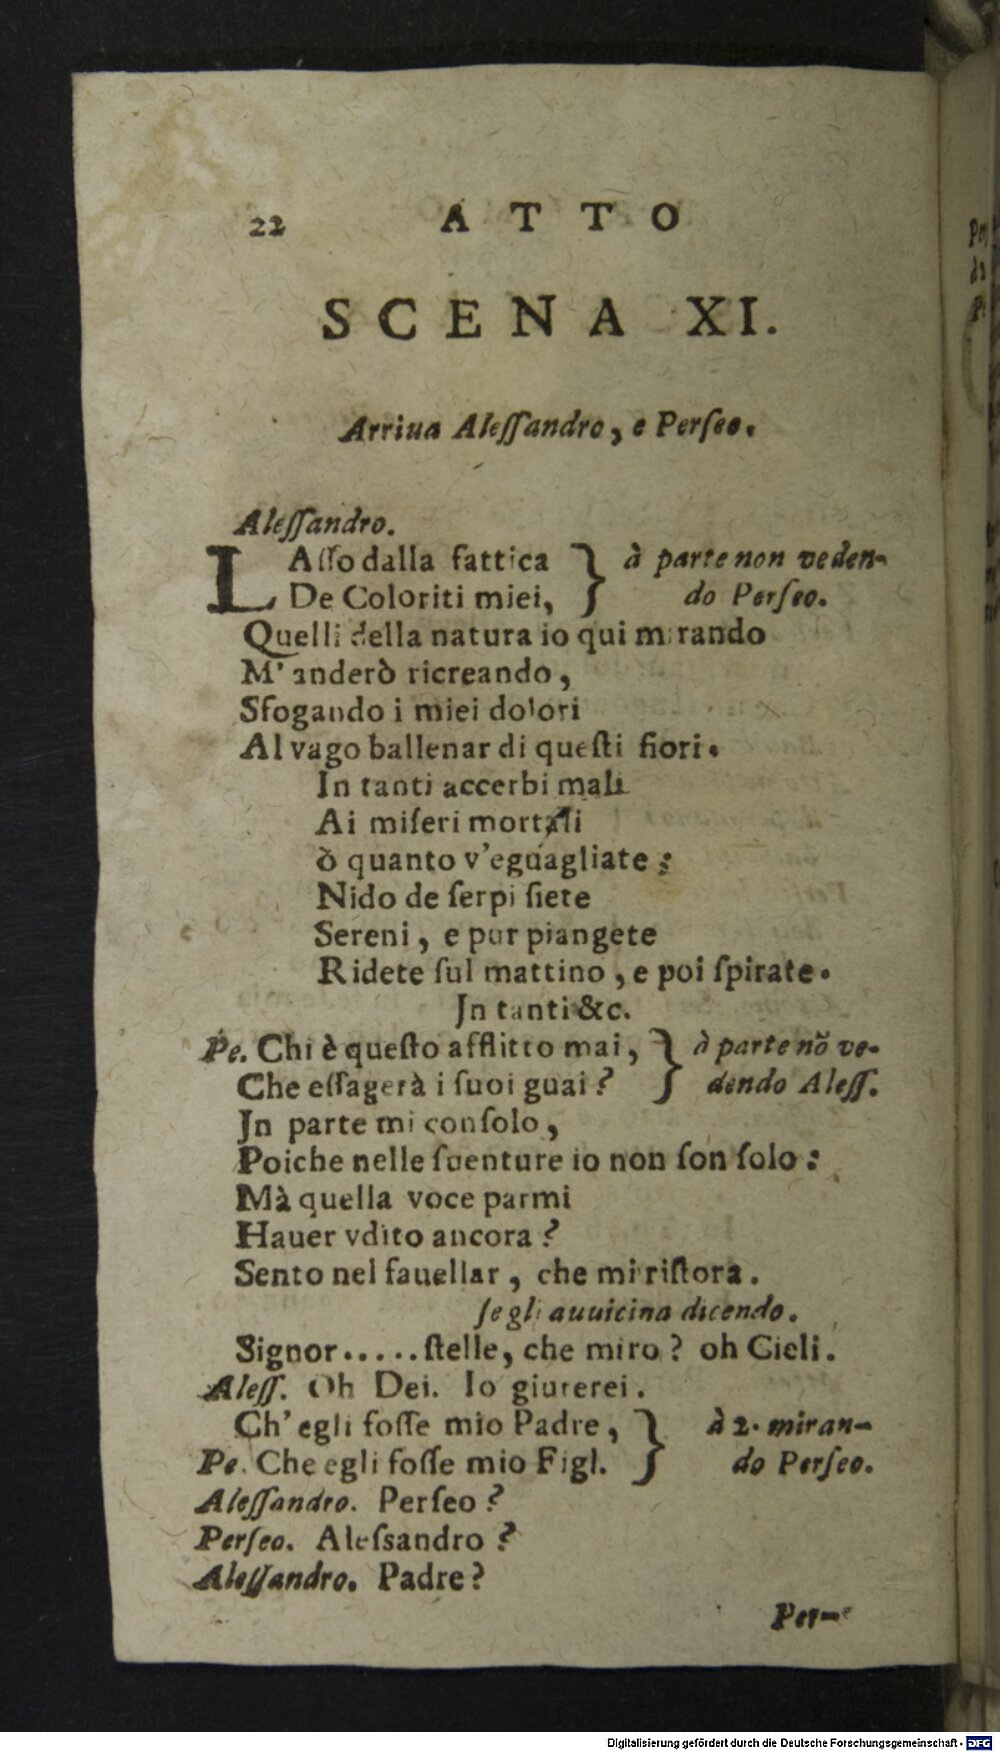 22 ATTO
SCENA XI.
Arriua Aleſſandro, e Perſeo.
Aleſſandro.
LAſſo dalla fattica } à parte non veden-
De Coloriti miei, } do Perſeo.
Quelli della natura io qui mirando
M' anderò ricreando,
Sfogando i miei dolori
Al vago ballenar di queſti fiori.
In tanti accerbi mali
Ai miſeri mortali
ò quanto v'eguagliate:
Nido de ſerpi ſiete
Sereni, e pur piangete
Ridete ſul mattino, e poi ſpirate.
Jn tanti &c.
Pe. Chi è queſto afflitto mai, } à parte nõ ve-
Che eſſagerà i ſuoi guai? } dendo Aleſſ.
Jn parte mi conſolo,
Poiche nelle ſuenture io non ſon ſolo:
Mà quella voce parmi
Hauer vdito ancora?
Sento nel fauellar, che mi riſtora.
ſe gli auuicina dicendo.
Signor.....ſtelle, che miro? oh Cieli.
Aleſſ. Oh Dei. Io giurerei.
Ch' egli foſſe mio Padre, } à 2. miran-
Pe. Che egli foſſe mio Figl. } do Perſeo.
Aleſſandro. Perſeo?
Perſeo. Aleſsandro?
Aleſſandro. Padre?
Per-
Digitalisierung gefördert durch die Deutsche Forschungsgemeinschaft - DFG